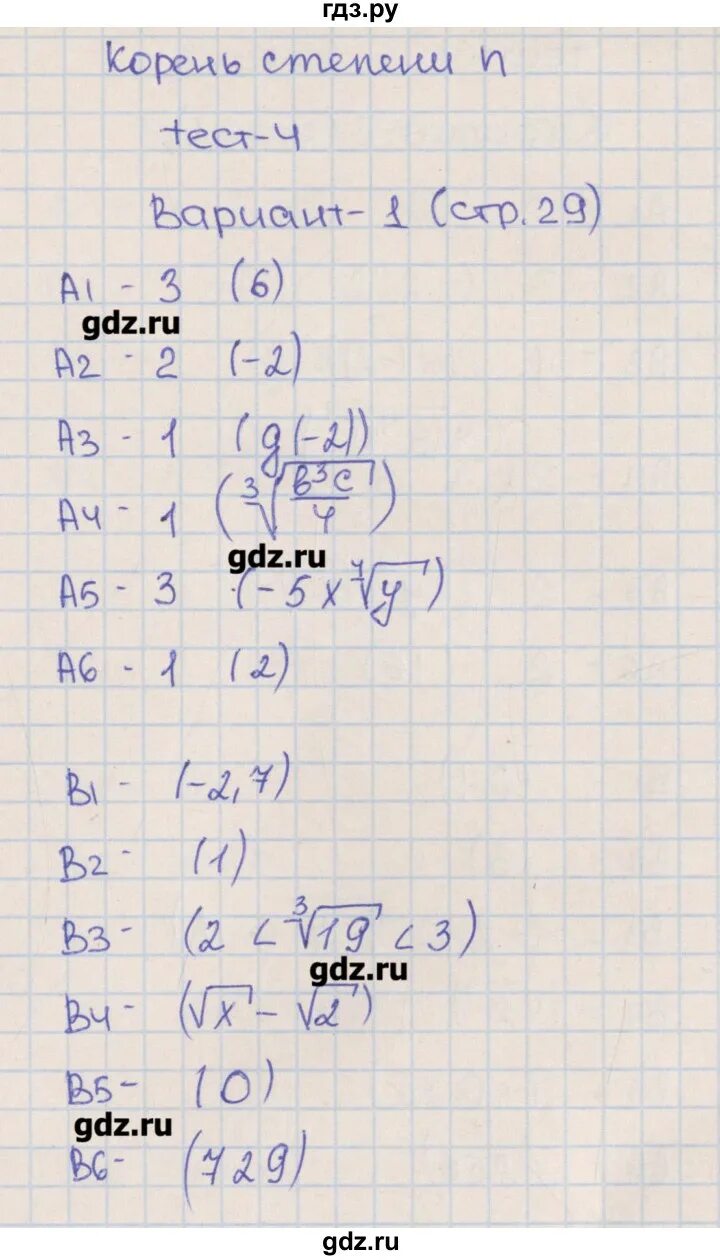 гдз.ру
Корень степени n
тест-4
Вариант-1 (стр.29)
А1 - 3 (6)
gdz.ru
А2 - 2 (-2)
А3 - 1 (g(-2))
А4 - 1 (∛(в³с/4))
gdz.ru
А5 - 3 (-5x⁴√y)
А6 - 1 (2)
В1 - (-2,7)
В2 - (1)
В3 - (2 < ∛19 < 3)
gdz.ru
В4 - (√x - √2)
В5 - (0)
gdz.ru
В6 - (729)
gdz.ru